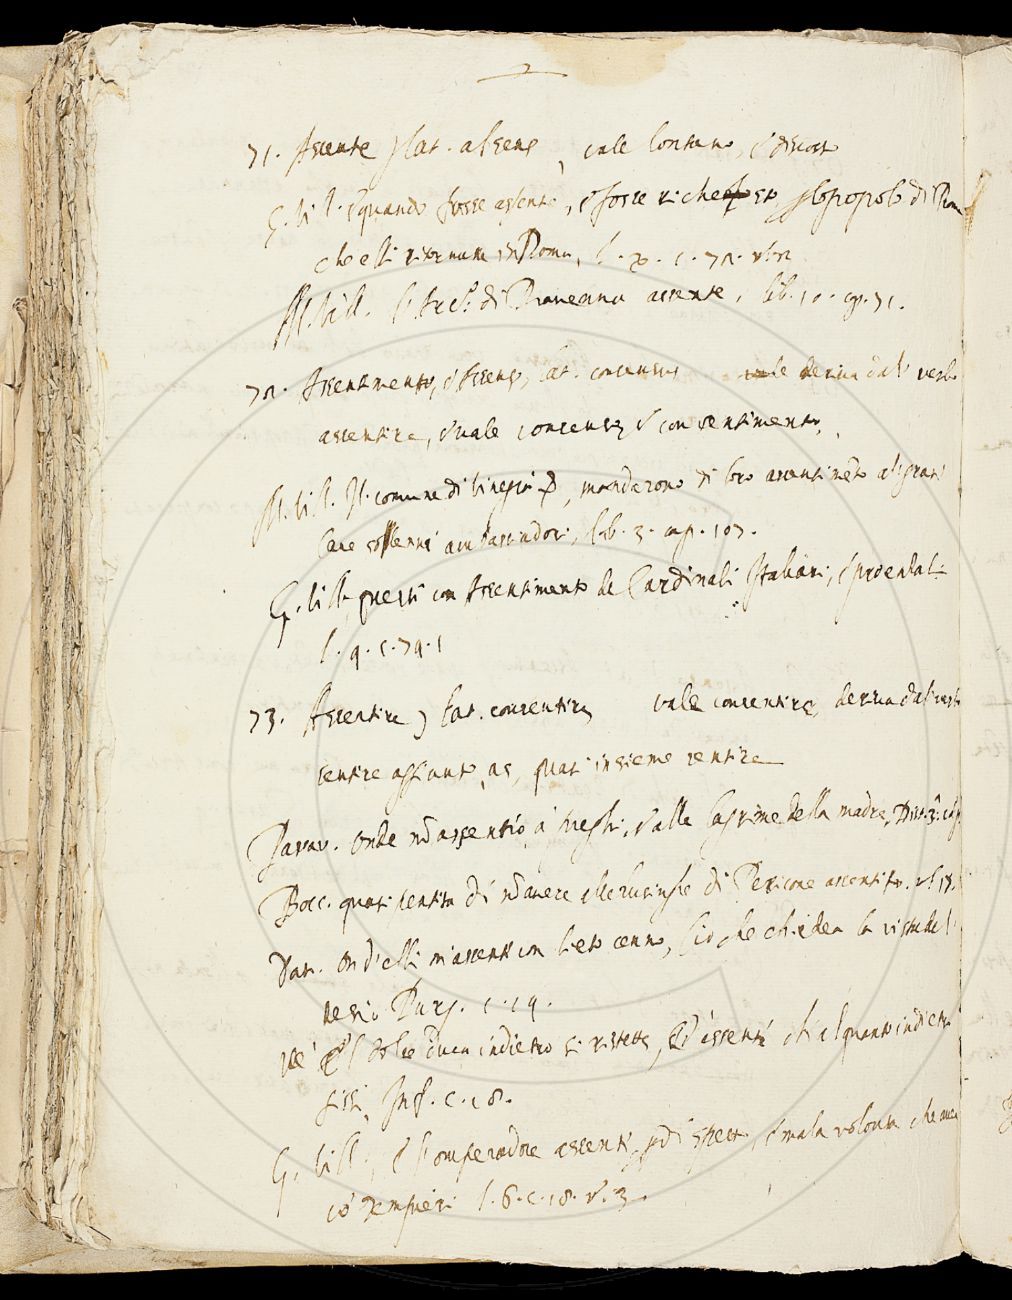 71. Assente, lat. absens, vale lontano, e discosto
G. Vill. e quando fosse assente, e fosse richesto pel popolo di Rom
che elli ritornare in Roma, l. x. c. 72.
M. Vill. di Ravenna assente, lib. 10. cap. 71.
72. Assentimento, e assenso, lat. consensus vale deriva dal verbo
assentire, e vale consenso, e consentimento,
M. Vill. Il comune di Vinegia, mandarono di loro assentimeto al gran
Cane solenni ambasciadori, lib. 3. cap. 107.
G. Vill. questi con assentimento de Cardinali Italiani, e
l. 9. c. 79. 1
73. Assentire, Lat. consentire, vale consentire, deriva dal verb
sentire aggiunto, as, quasi insieme sentire
onde nō assentio a preghi, e alle lagrime della madre,
Bocc. quasi pentita di nō avere alle lusinghe di Pericone assentito.
Dan. Ond'elli m'assentì con lieto cenno, Ciò che chiedea la vista del
desio Purg. c. 19.
E'l dolce Duca indietro si ristette, Ed assentì ch'alquanto indietro
gissi, Inf. c. 18.
G. Vill., e l'omperadore assentì, per dispetto e mala volonta che avea
co' Tempieri l. 6. c. 18. v. 3.